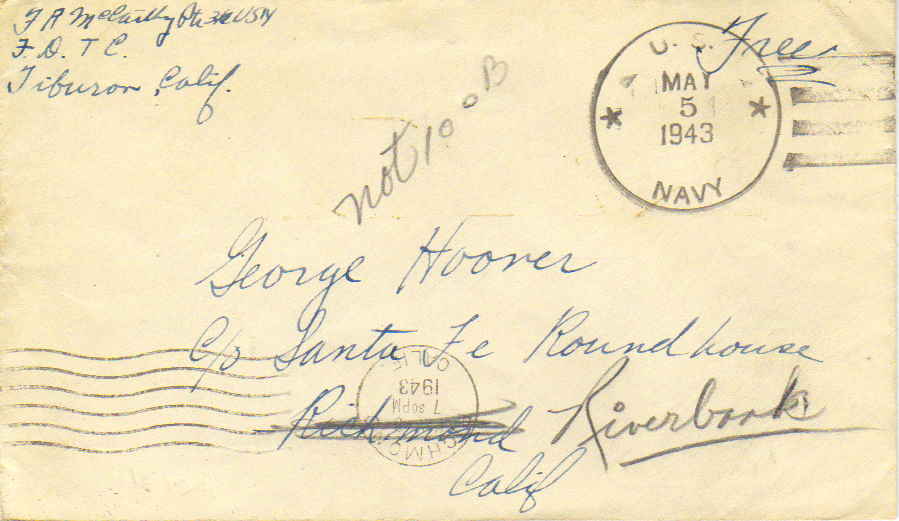 F A McCarthy Ptr 3/c USN
F. D. T C.
Tiburon, Calif.
Free
U. S.
MAY
5
1943
NAVY
not 100B
George Hoover
c/o Santa Fe Roundhouse
Richmond Riverbank
Calif
CALIF.
1943
7 30PM
RICHMO